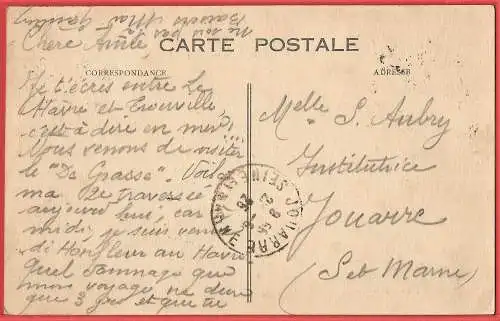 CARTE POSTALE
CORRESPONDANCE
ADRESSE
Chère Amie,
Je t'écris entre Le
Havre et Trouville,
c'est à dire en mer!...
Nous venons de visiter
le "De Grasse". Voilà
ma 2e traversée
aujourd'hui, car
midi, je suis venue
de Honfleur au Havre
Quel dommage que
mon voyage ne dure
que 3 jrs et que tu
ne sois pas là
Baisers
Melle S. Aubry
Institutrice
Jouarre
(Set Marne)
JOUARRE
SEINE ET MARNE